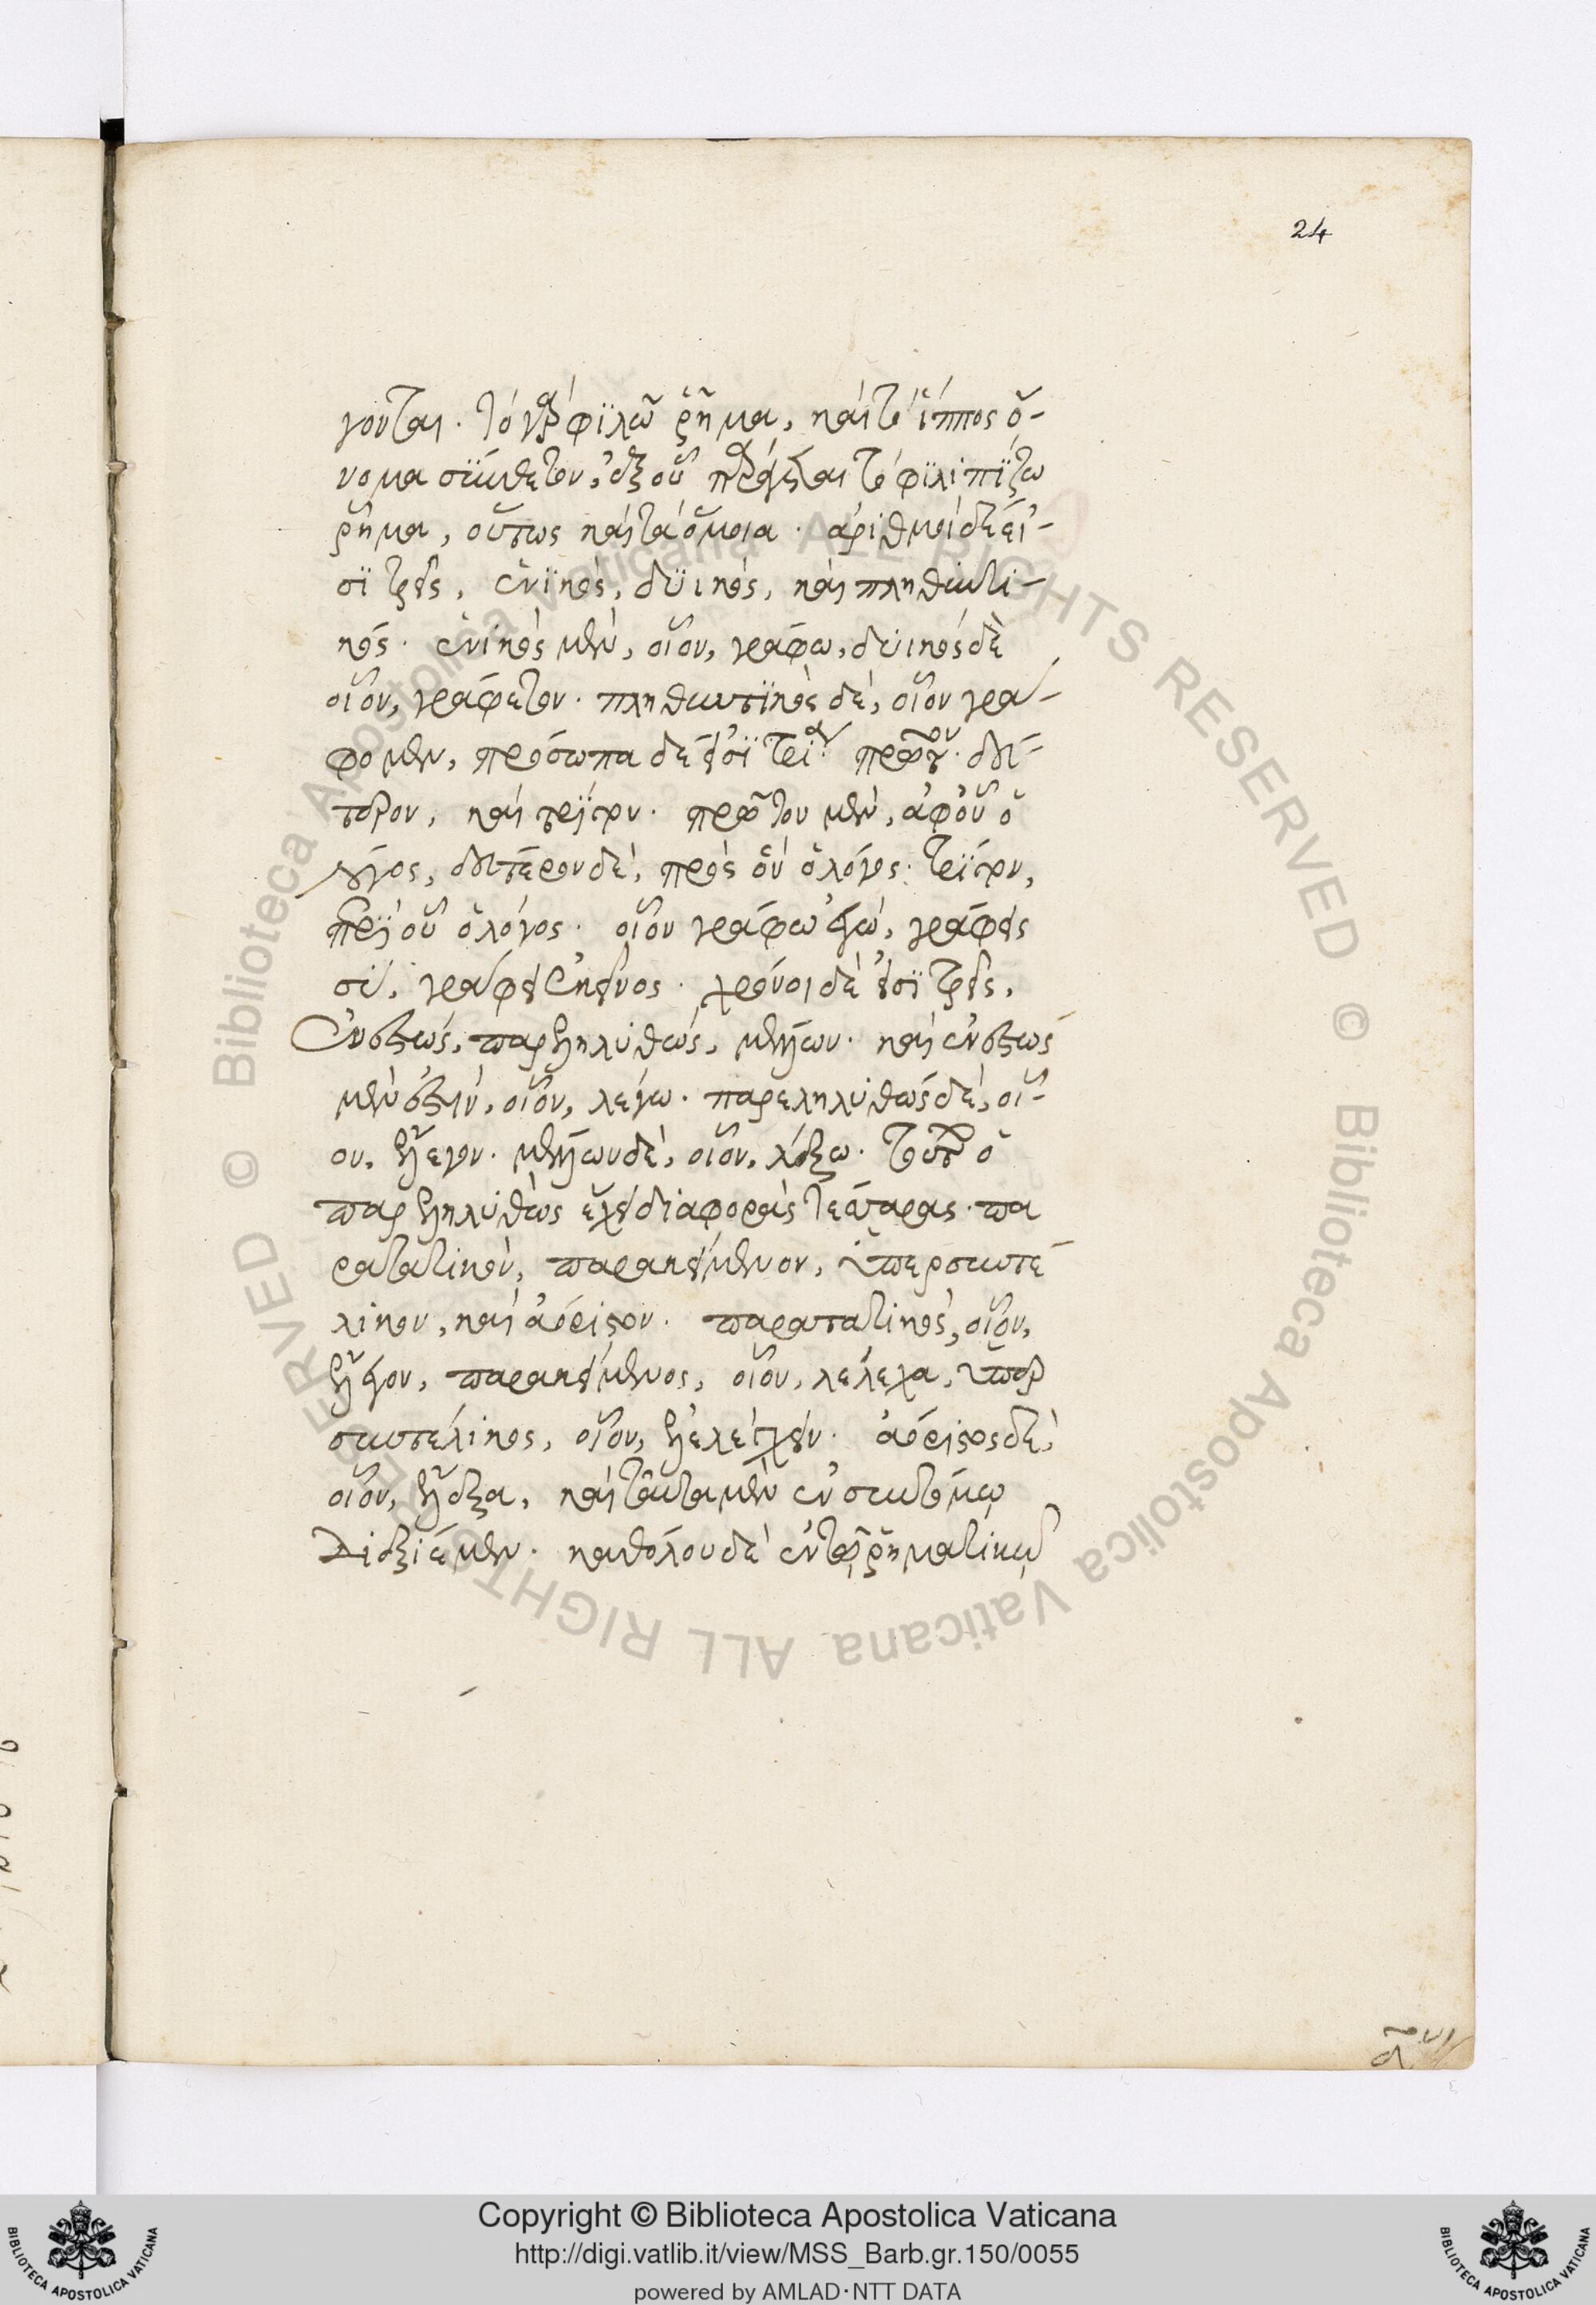 24
γονται. τὸ γὰρ φϊλῶ ῥῆμα, καὶ τὸ ἵππος ὄ-
νομα σύνθετον, ἐξ οὗ παράγεται τὸ φϊλιπίζω
ῥῆμα, οὕτως καὶ τὰ ὅμοια. ἀριθμοὶ δὲ εἰ-
σῒ τρεῖς, ἑνϊκὸς, δϋικὸς, καὶ πληθυντι-
κός. ἑνικὸς μὲν, οἷον, γράφω, δυικὸς δὲ
οἷον, γράφετον. πληθυντϊκὸς δὲ, οἷον γρά-
φομεν, πρόσωπα δὲ εἰσῒ τρία πρῶτον. δεύ-
τερον, καὶ τρίτον. πρῶτον μὲν, ἀφ' οὗ ὁ
λόγος, δεύτερον δὲ, πρὸς ὃν ὁ λόγος. τρίτον,
περὶ οὗ ὁ λόγος. οἷον γράφω ἐγὼ, γράφεις
σὺ, γράφει ἐκεῖνος. χρόνοι δὲ εἰσῒ τρεῖς,
ἐνεστὼς, παρεληλυθὼς, μέλλων. καὶ ἐνεστὼς
μὲν ἐστὶν, οἷον, λέγω. παρεληλυθὼς δὲ, οἷ-
ον, ἔλεγον. μέλλων δὲ, οἷον, λέξω. τούτων ὁ
παρεληλυθὼς ἔχει διαφορὰς τέσσαρας. πα
ρατατικὸν, παρακείμενον, ὑπερσυντέ
λικον, καὶ ἀόριστον. παρατατικὸς, οἷον,
ἔλεγον, παρακείμενος, οἷον, λέλεχα, ὑπερ
συντέλικος, οἷον, ἐλελέχειν. ἀόριστος δὲ,
οἷον, ἔλεξα, καὶ ταῦτα μὲν ἐν συντόμῳ
διεξίεμεν. καθόλου δὲ ἐν τῷ ῥηματικῷ
Copyright © Biblioteca Apostolica Vaticana
http://digi.vatlib.it/view/MSS_Barb.gr.150/0055
powered by AMLAD·NTT DATA
BIBLIOTECA APOSTOLICA VATICANA
BIBLIOTECA APOSTOLICA VATICANA
© Biblioteca Apostolica Vaticana ALL RIGHTS RESERVED © Biblioteca Apostolica Vaticana ALL RIGHTS RESERVED